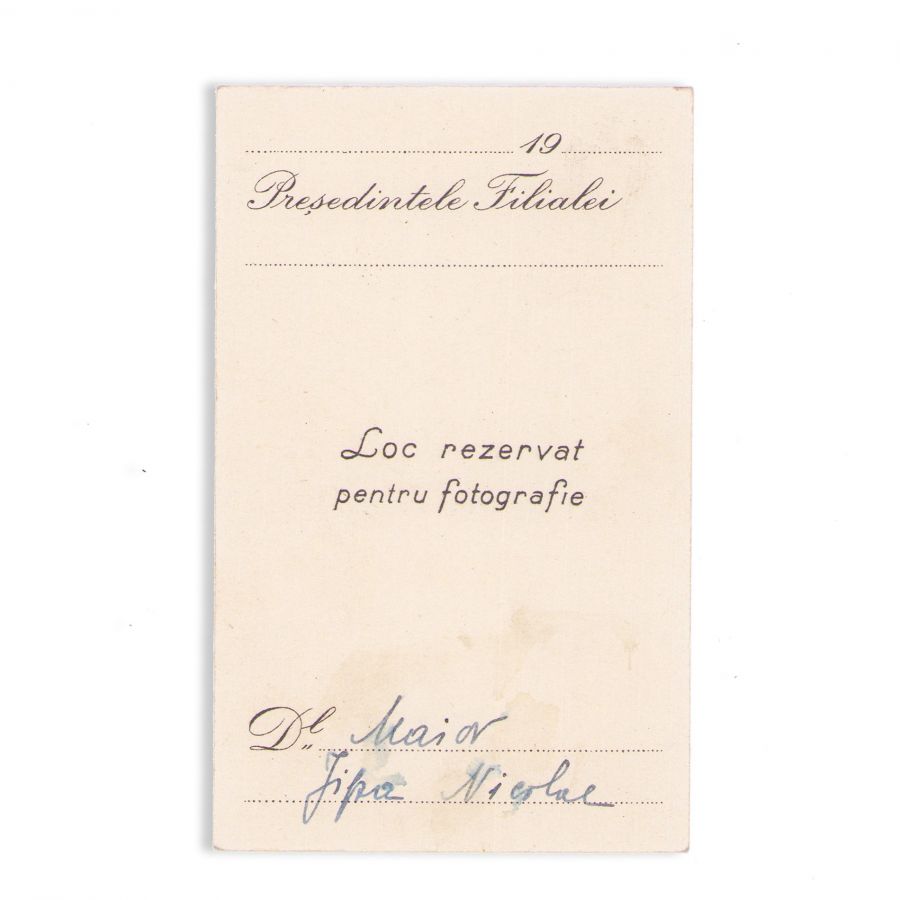 19
Președintele Filialei
Loc rezervat
pentru fotografie
Dl Maior
Jipa Nicolae